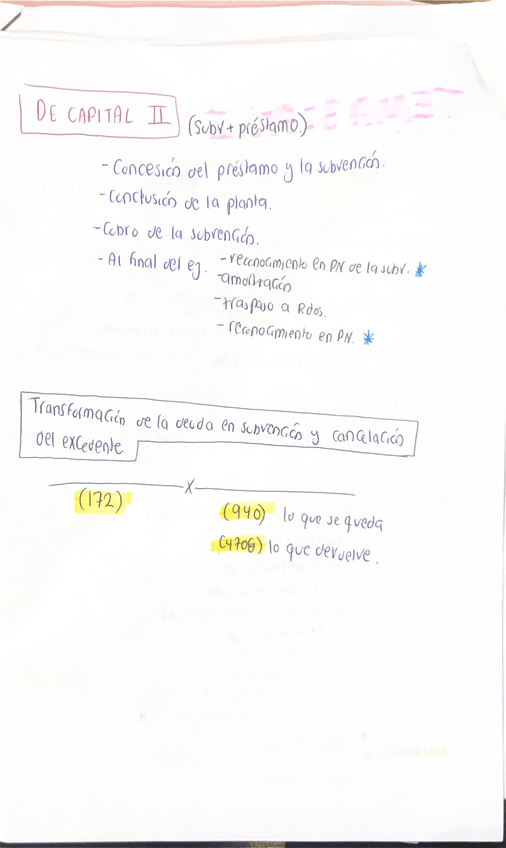 DE CAPITAL II (subv + préstamo)
- Concesión del préstamo y la subvención.
- Conclusión de la planta.
- Cobro de la subvención.
- Al final del ej. - reconocimiento en PN de la subv. *
- amortización
- traspaso a Rdos.
- reconocimiento en PN. *
Transformación de la deuda en subvención y cancelación
del excedente
x
(172)
(940) lo que se queda
(4708) lo que devuelve.